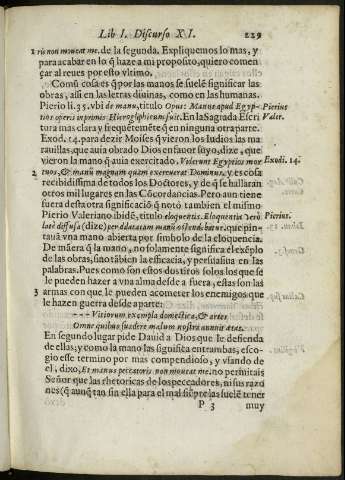 Lib I. Discurso XI. 229
1 ris non moueat me. de la segunda. Expliquemos lo mas, y
para acabar en lo q̃ haze a mi proposito, quiero començar
çar al reues por esto vltimo.
Comũ cosa es q̃ por las manos se suelẽ significar las
obras, assi en las letras diuinas, como en las humanas.
Pierio li. 35. vbi de manu, titulo Opus: Manus apud Egyp- Pierius
tios operis inprimis Hieroglyphicum fuit. En la Sagrada Escri Valer.
tura mas clara y frequẽtemẽte q̃ en ninguna otra parte.
Exod. 14. para dezir Moises q̃ vieron los Iudios las ma
rauillas, que auia obrado Dios en fauor suyo, dize, que
vieron la mano q̃ auia exercitado. Viderunt Egyptios mor Exod. 14.
2 tuos, & manũ magnam quam exercuerat Dominus, y es cosa
recibidissima de todos los Doctores, y de q̃ se hallaran
otros mil lugares en las Cõcordancias. Pero aun tiene
fuera desta otra significaciõ q̃ notò tambien el mismo
Pierio Valeriano ibidẽ, titulo eloquentis. Eloquentia verò Pierius.
latè diffusa (dize) per dilatatam manũ ostendebatur, que pin-
tauã vna mano abierta por simbolo de la eloquencia.
De mãera q̃ la mano, no solamente significa el exẽplo
de las obras, sino tãbien la efficacia, y persuasiua en las
palabras. Pues como son estos dos tiros solos los que se
le pueden hazer a vna alma desde a fuera, estas son las
3 armas con que le pueden acometer los enemigos que
le hazen guerra desde aparte:
---Vitiorum exempla domestica, & artes
Omne quibus suadere malum nostra auunit ætas.
En segundo lugar pide Dauid a Dios que le defienda
de ellas; y como la mano las significa entrambas, esco-
gio esse termino por mas compendioso, y vsando de
el, dixo, Et manus peccatoris non moueat me, no permitais
Señor que las rhetoricas de los peccadores, ni sus razo
nes (q̃ aunq̃ tan sin ella para el mal siẽpre las suelẽ tener
P 3 muy